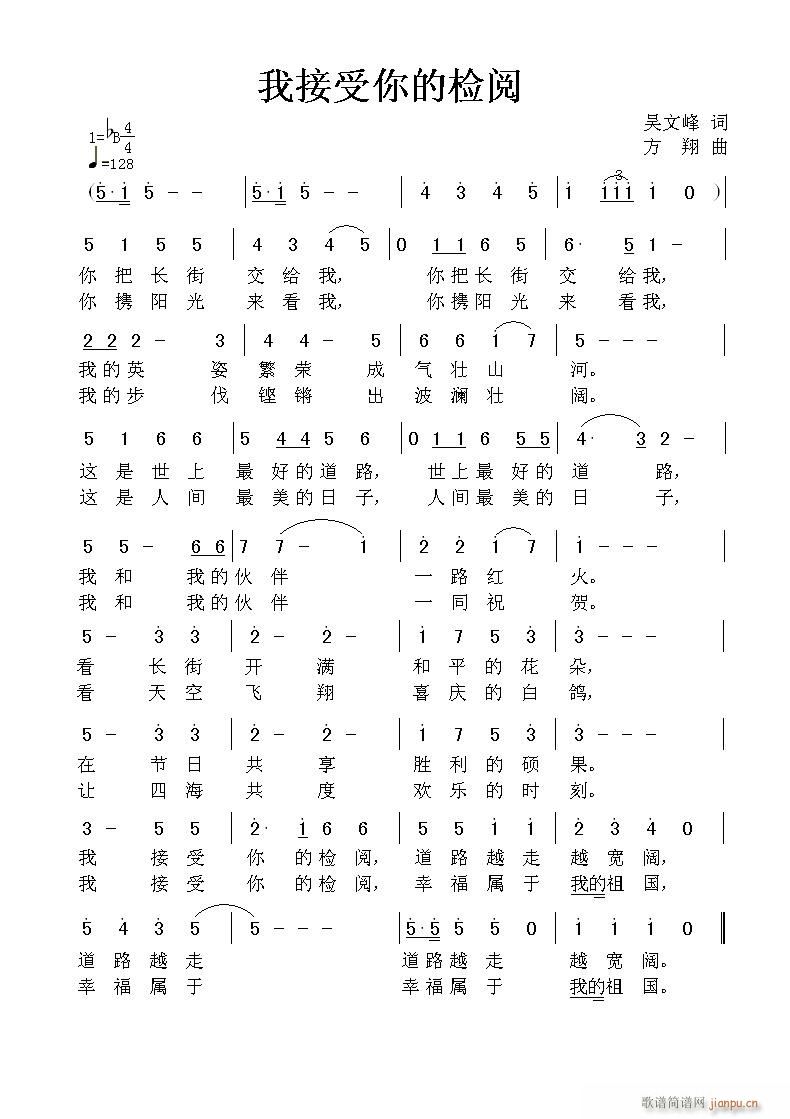 我接受你的检阅
吴文峰 词
1=♭B 4/4
方 翔 曲
♩=128
(5·1 5 - - | 5·1 5 - - | 4 3 4 5 | 1 111 1 0 )
3
5 1 5 5 | 4 3 4 5 | 0 1 1 6 5 | 6· 5 1 - |
你 把 长 街 交 给 我, 你 把 长 街 交 给 我,
你 携 阳 光 来 看 我, 你 携 阳 光 来 看 我,
2 2 2 - 3 | 4 4 - 5 | 6 6 1 7 | 5 - - - |
我 的 英 姿 繁 荣 成 气 壮 山 河。
我 的 步 伐 铿 锵 出 波 澜 壮 阔。
5 1 6 6 | 5 4 4 5 6 | 0 1 1 6 5 5 | 4· 3 2 - |
这 是 世 上 最 好 的 道 路, 世 上 最 好 的 道 路,
这 是 人 间 最 美 的 日 子, 人 间 最 美 的 日 子,
5 5 - 6 6 | 7 7 - 1 | 2 2 1 7 | 1 - - - |
我 和 我 的 伙 伴 一 路 红 火。
我 和 我 的 伙 伴 一 同 祝 贺。
5 - 3 3 | 2 - 2 - | 1 7 5 3 | 3 - - - |
看 长 街 开 满 和 平 的 花 朵,
看 天 空 飞 翔 喜 庆 的 白 鸽,
5 - 3 3 | 2 - 2 - | 1 7 5 3 | 3 - - - |
在 节 日 共 享 胜 利 的 硕 果。
让 四 海 共 度 欢 乐 的 时 刻。
3 - 5 5 | 2· 1 6 6 | 5 5 1 1 | 2 3 4 0 |
我 接 受 你 的 检 阅, 道 路 越 走 越 宽 阔,
我 接 受 你 的 检 阅, 幸 福 属 于 我的 祖 国,
5 4 3 5 | 5 - - - | 5·5 5 5 0 | 1 1 1 0 ‖
道 路 越 走 道 路 越 走 越 宽 阔。
幸 福 属 于 幸 福 属 于 我的 祖 国。
歌谱简谱网 jianpu.cn